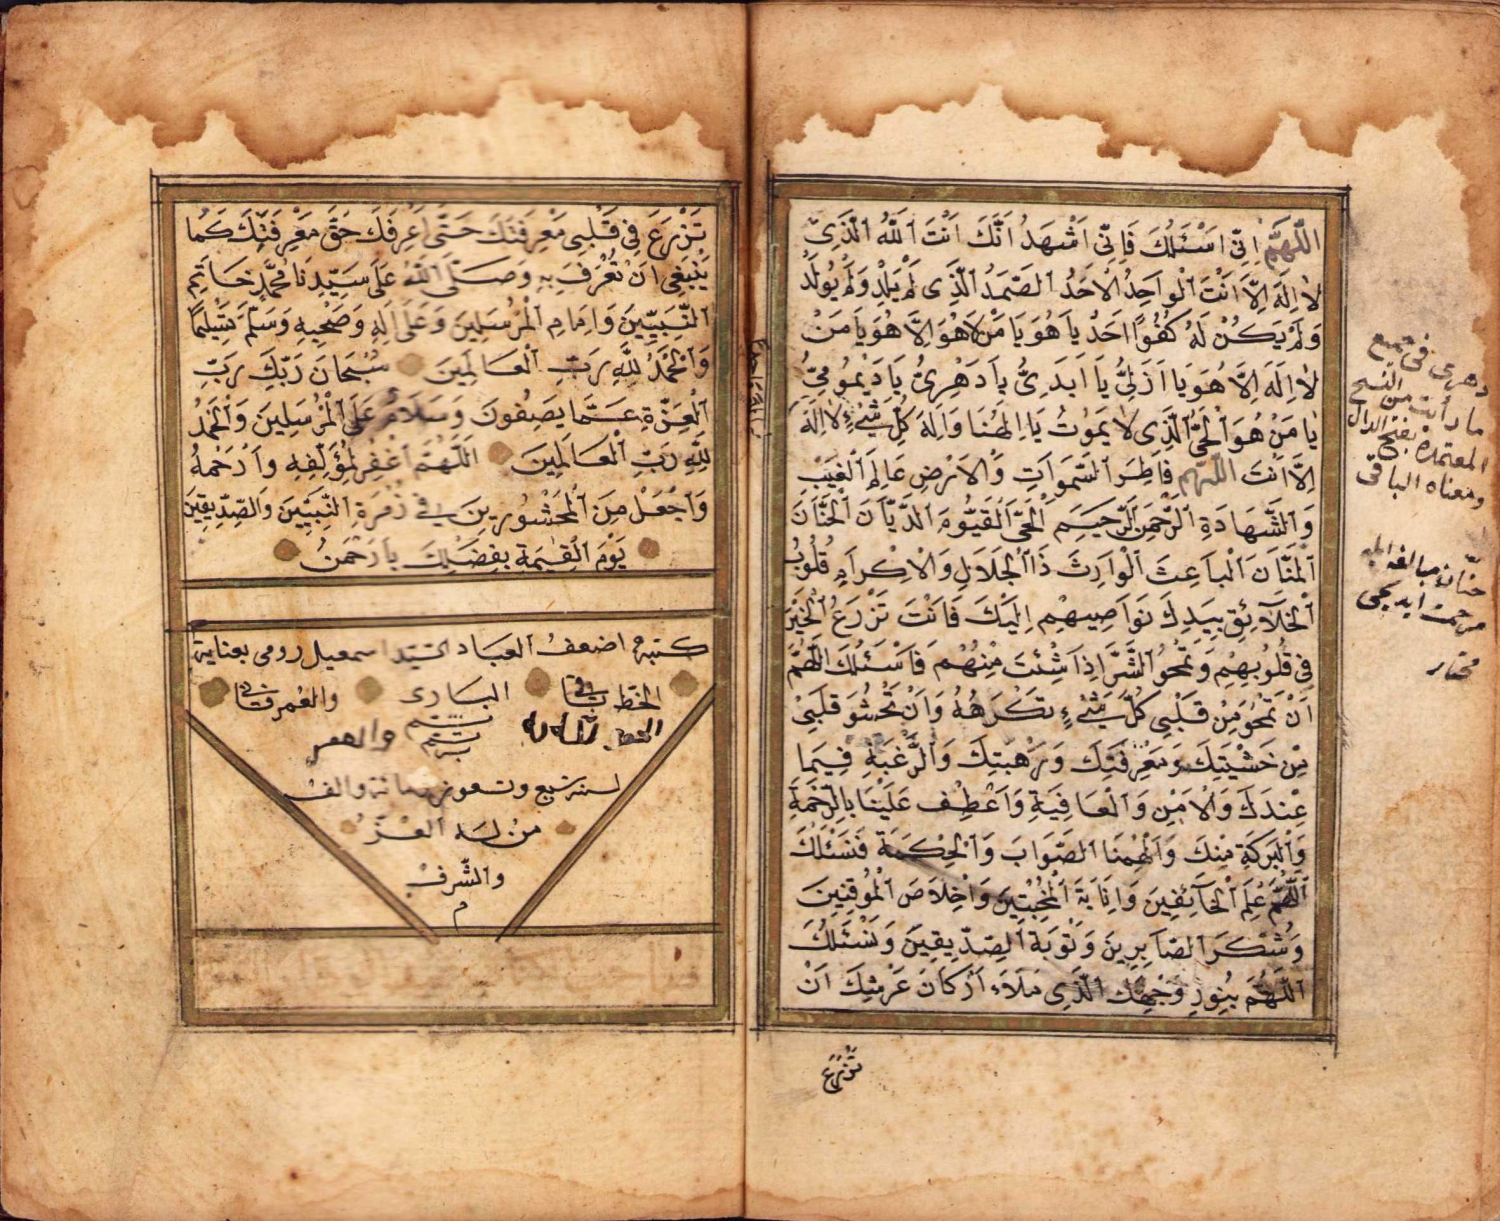 اَللّٰهُمَّ اِنِّى اَسْئَلُكَ فَاِنِّى اَشْهَدُ اَنَّكَ اَنْتَ اَللّٰهُ اَلَّذِى
لَا اِلٰهَ اِلَّا اَنْتَ اَلْوَاحِدُ اْلاَحَدُ اَلصَّمَدُ اَلَّذِى لَمْ يَلِدْ وَلَمْ يُولَدْ
وَلَمْ يَكُنْ لَهُ كُفُوًا اَحَدْ يَا هُوَ يَا مَنْ لَا هُوَ اِلَّا هُوَ يَا مَنْ
لَا اِلٰهَ اِلَّا هُوَ يَا اَزَلِىُّ يَا اَبَدِىُّ يَا دَهْرِىُّ يَا دَيْمُومِىُّ
يَا مَنْ هُوَ اَلْحَىُّ اَلَّذِى لَا يَمُوتُ يَا اِلٰهَنَا وَاِلٰهَ كُلِّ شَيْءٍ لَا اِلٰهَ
اِلَّا اَنْتَ اَللّٰهُمَّ فَاطِرَ اَلسَّمَوَاتِ وَاْلاَرْضِ عَالِمَ اَلْغَيْبِ
وَالشَّهَادَةِ اَلرَّحْمٰنَ اَلرَّحِيمَ اَلْحَىَّ اَلْقَيُّومَ اَلدَّيَّانَ اَلْحَنَّانَ
اَلْمَنَّانَ اَلْبَاعِثَ اَلْوَارِثَ ذَا اَلْجَلَالِ وَاْلاِكْرَامِ قُلُوبُ
اَلْخَلَآئِقِ بِيَدِكَ نَوَاصِيهِمْ اِلَيْكَ فَاَنْتَ تَزْرَعُ اَلْخَيْرَ
فِى قُلُوبِهِمْ وَتَمْحُو اَلشَّرَّ اِذَا شِئْتَ مِنْهُمْ فَاَسْئَلُكَ اَللّٰهُمَّ
اَنْ تَمْحُوَ مِنْ قَلْبِى كُلَّ شَيْءٍ تَكْرَهُهُ وَاَنْ تَحْشُوَ قَلْبِى
مِنْ خَشْيَتِكَ وَمَعْرِفَتِكَ وَرَهْبَتِكَ وَالرَّغْبَةِ فِيمَا
عِنْدَكَ وَاْلاَمْنِ وَالْعَافِيَةِ وَاَعْطِفْ عَلَيْنَا بِالرَّحْمَةِ
وَالْبَرَكَةِ مِنْكَ وَاَلْهِمْنَا اَلصَّوَابَ وَالْحِكْمَةَ فَنَسْئَلُكَ
اَللّٰهُمَّ عِلْمَ اَلْخَآئِفِينَ وَاِنَابَةَ اَلْمُخْبِتِينَ وَاِخْلَاصَ اَلْمُوقِنِينَ
وَشُكْرَ اَلصَّابِرِينَ وَتَوْبَةَ اَلصِّدِّيقِينَ وَنَسْئَلُكَ
اَللّٰهُمَّ بِنُورِ وَجْهِكَ اَلَّذِى مَلَاءَ اَرْكَانَ عَرْشِكَ اَنْ
تَزْرَعَ
دهرى فى جميع
ما رأيت من النسخ
المعتمدة بفتح الدال
ومعناه الباقى
حنّان مبالغه ايله
مرحمت ايديجى
مختار
تَزْرَعَ فِى قَلْبِى مَعْرِفَتَكَ حَتَّى اَعْرِفَكَ حَقَّ مَعْرِفَتِكَ كَمَا
يَنْبَغِى اَنْ تُعْرَفَ بِهِ وَصَلَّى اَللّٰهُ عَلَى سَيِّدِنَا مُحَمَّدٍ خَاتَمِ
اَلنَّبِيِّينَ وَاِمَامِ اَلْمُرْسَلِينَ وَعَلَى اَلِهِ وَصَحْبِهِ وَسَلَّمَ تَسْلِيمًا
وَاَلْحَمْدُ لِلّٰهِ رَبِّ اَلْعَالَمِينَ سُبْحَانَ رَبِّكَ رَبِّ
اَلْعِزَّةِ عَمَّا يَصِفُونَ وَسَلَامٌ عَلَى اَلْمُرْسَلِينَ وَالْحَمْدُ
لِلّٰهِ رَبِّ اَلْعَالَمِينَ اَللّٰهُمَّ اَغْفِرْ لِمُؤَلِّفِهِ وَاَرْحَمْهُ
وَاَجْعَلْهُ مِنَ اَلْمَحْشُورِينَ فِى زُمْرَةِ اَلنَّبِيِّينَ وَالصِّدِّيقِينَ
يَوْمَ اَلْقِيٰمَةِ بِفَضْلِكَ يَا رَحْمٰنُ
كتبه اضعف العباد السيد اسمعيل رومى بعناية
البارى الخط باقى والعمر فانى
لسنة سبع وتسعون ومائة والف
من له العزّ
والشّرف
م